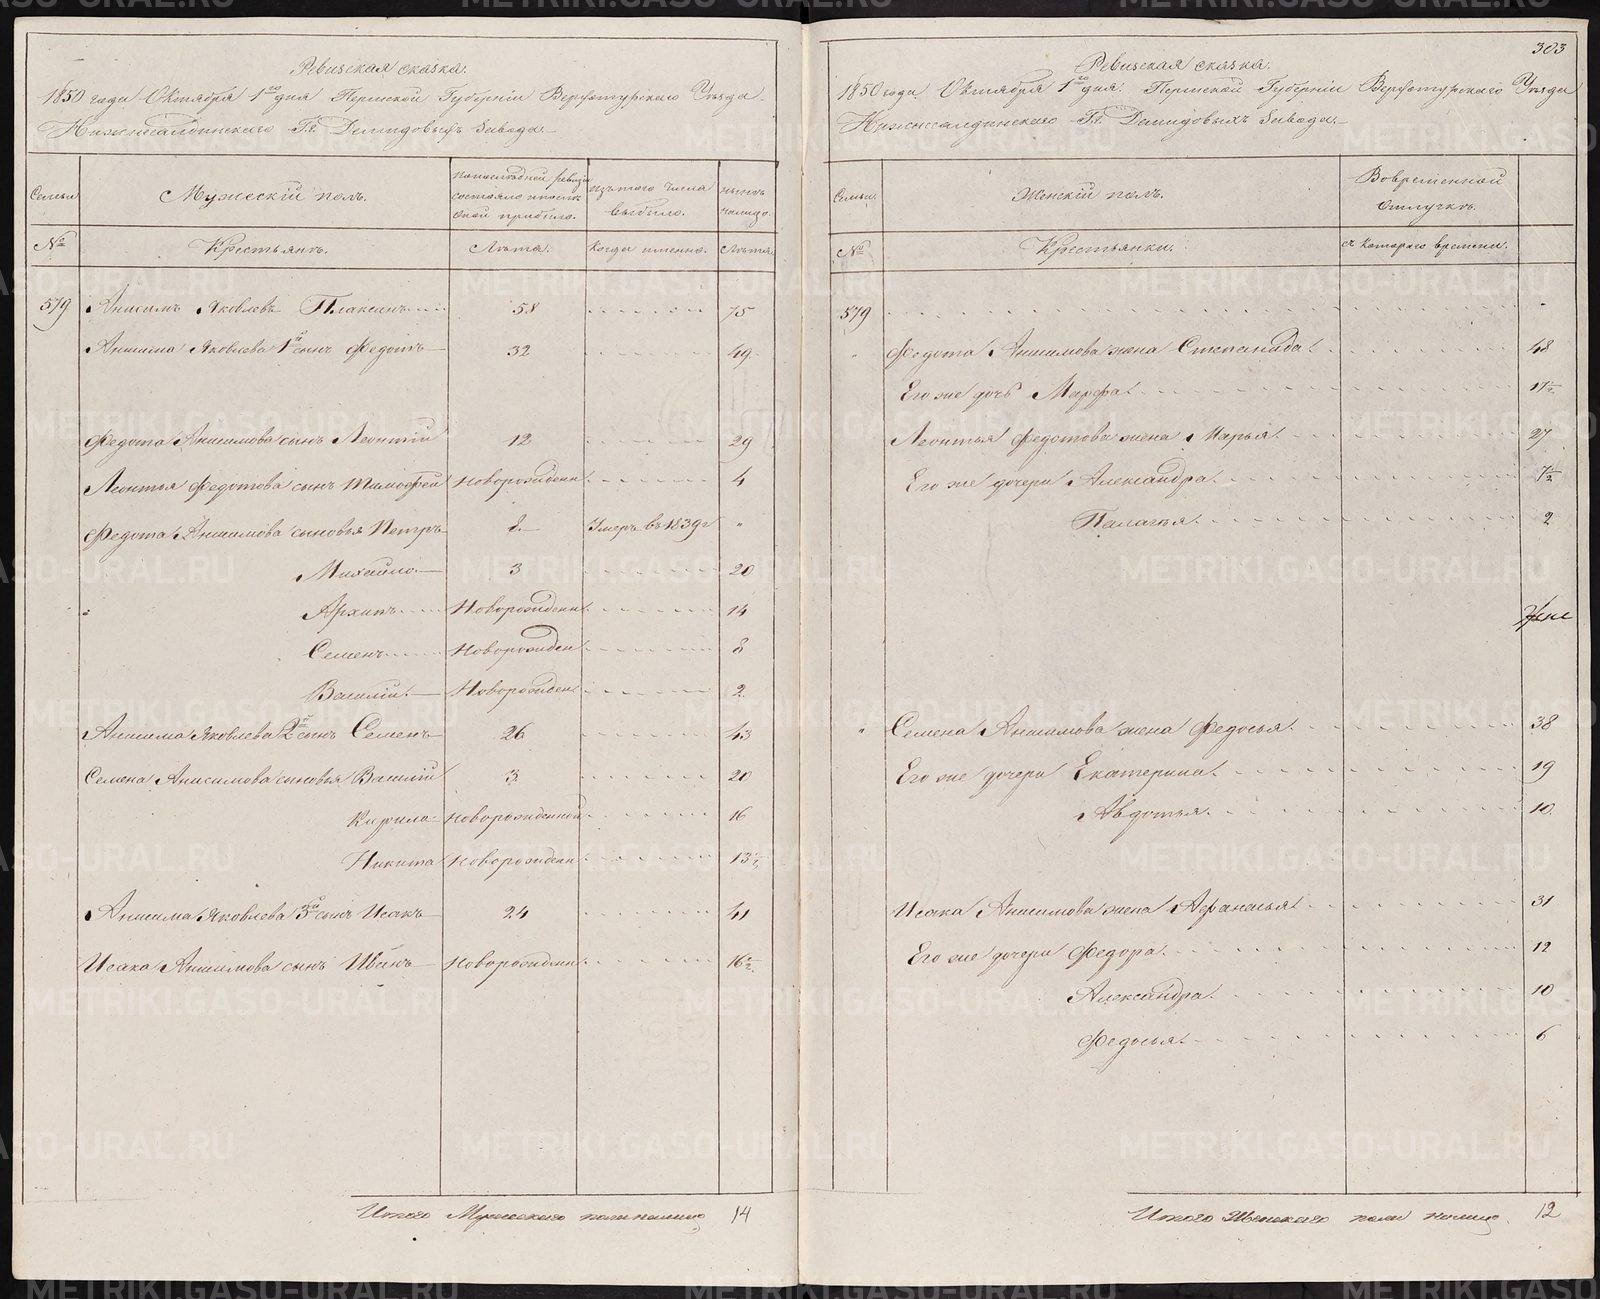 Ревизская сказка.
1850 года Октября 1го дня Пермской Губернiи Верхотурскаго Уѣзда
Нижнесалдинскаго Гг. Демидовыхъ Завода.
Семьи
Мужескiй полъ.
По последней ревизiи состояло и после оной прибыло.
Изъ того числа выбыло.
Нынѣ на лицо.
№
Крестьянъ.
Лѣта.
Когда именно.
Лѣта.
579 Анисимъ Яковлевъ Плаксинъ 58 75
Анисима Яковлева 1й сынъ Федотъ 32 49
Федота Анисимова сынъ Леонтiй 12 29
Леонтья Федотова сынъ Тимофей Новорожденн. 4
Федота Анисимова сыновья Петръ 8 Умеръ въ 1839 г "
Михайло 3 20
Архипъ Новорожденн. 14
Семенъ Новорожден 8
Василiй Новорожден. 2
Анисима Яковлева 2й сынъ Семенъ 26 43
Семена Анисимова сыновья Василiй 3 20
Кирило Новорожденной 16
Никита Новорожденн 13½
Анисима Яковлева 3й сынъ Исакъ 24 41
Исака Анисимова сынъ Иванъ Новорожденн 16½
Итого Мужескаго пола налицо 14
303
Ревизская сказка.
1850 года Октября 1го дня. Пермской Губернiи Верхотурскаго Уѣзда
Нижнесалдинскаго Гг. Демидовыхъ Завода.
Семьи.
Женскiй полъ.
Во временной отлучкѣ.
№
Крестьянки.
съ котораго времени.
579
" Федота Анисимова жена Степанида 48
Его же дочь Марфа 17½
Леонтья Федотова жена Марья 27
Его же дочери Александра 7½
Палагья 2
" Семена Анисимова жена Федосья 38
Его же дочери Екатерина 19
Авдотья 10
Исака Анисимова жена Афанасья 31
Его же дочери Федора 12
Александра 10
Федосья 6
Итого Женскаго пола налицо 12
METRIKI.GASO-URAL.RU